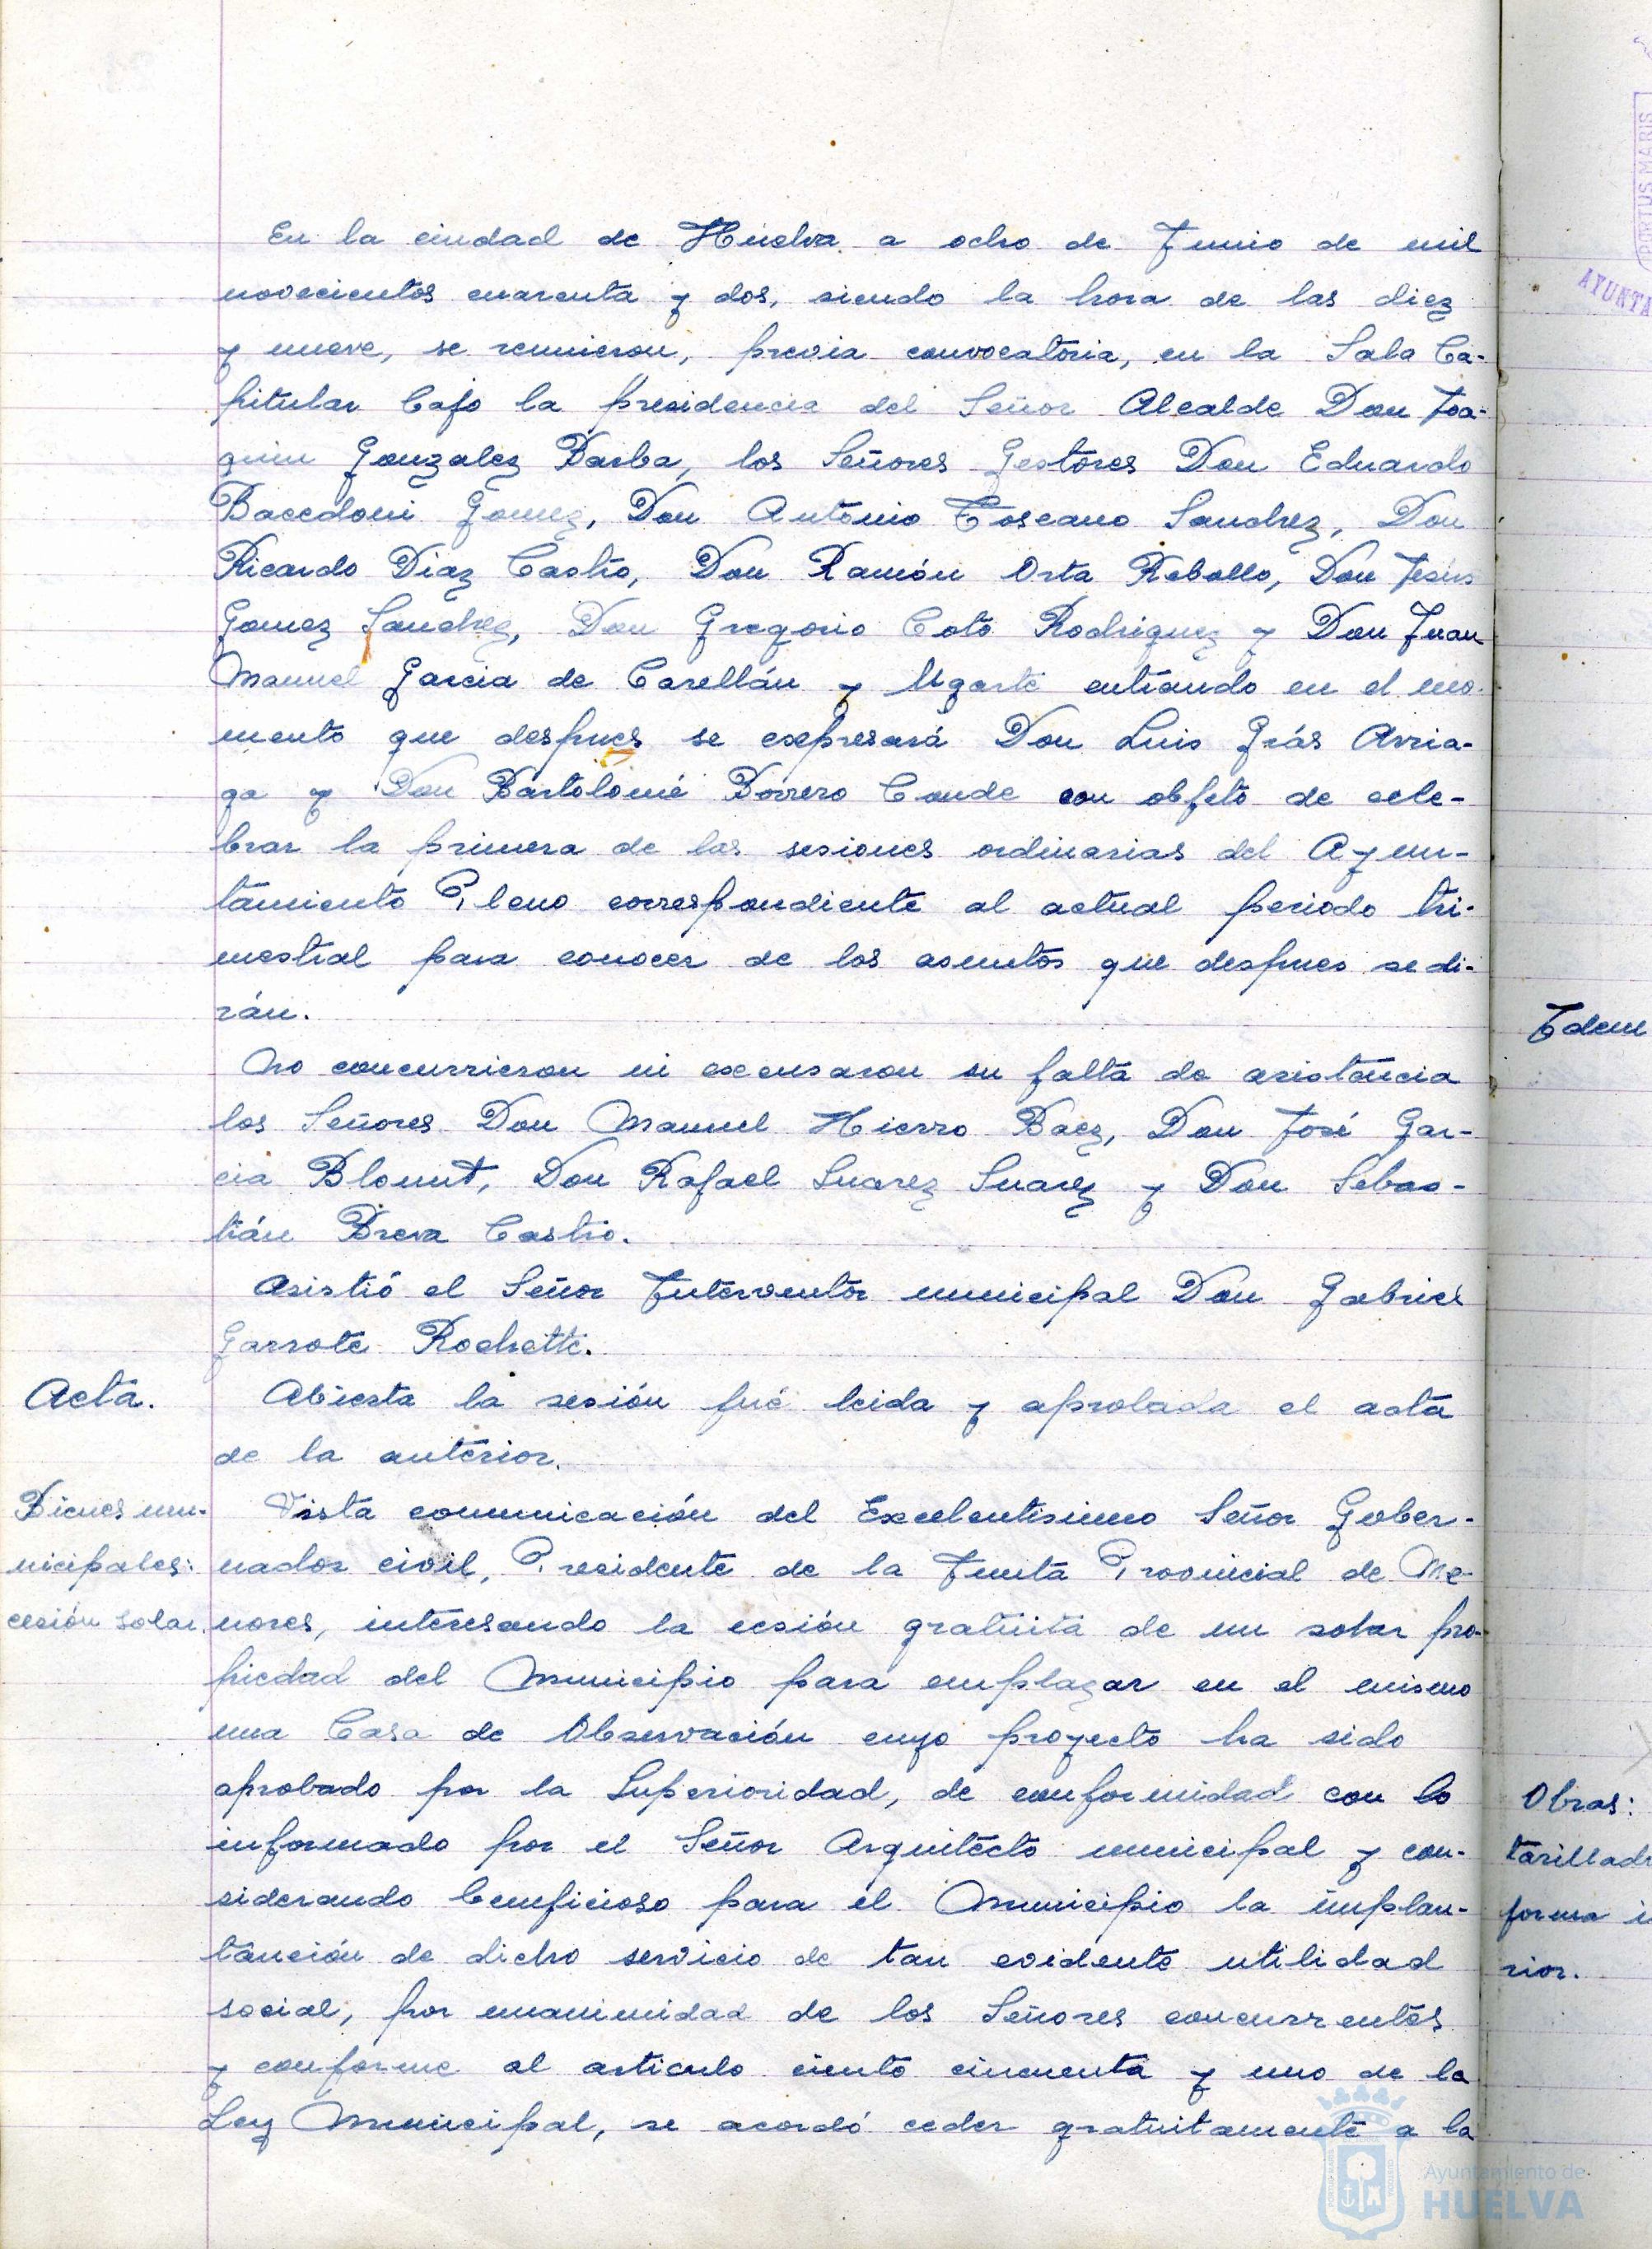 En la ciudad de Huelva a ocho de Junio de mil
novecientos cuarenta y dos, siendo la hora de las diez
y nueve, se reunieron, previa convocatoria, en la Sala Ca-
pitular bajo la presidencia del Señor Alcalde Don Joa-
quin Gonzalez Barba, los Señores Gestores Don Eduardo
Bacedoni Gomez, Don Antonio Toscano Sanchez, Don
Ricardo Diaz Castro, Don Ramón Orta Rebollo, Don Jesús
Gomez Sanchez, Don Gregorio Coto Rodriguez y Don Juan
Manuel Garcia de Carellán y Ugarte entrando en el mo-
mento que despues se expresará Don Luis Grás Arria-
ga y Don Bartolomé Borrero Conde con objeto de cele-
brar la primera de las sesiones ordinarias del Ayun-
tamiento Pleno correspondiente al actual periodo tri-
mestral para conocer de los asuntos que despues se di-
rán.
No concurrieron ni excusaron su falta de asistencia
los Señores Don Manuel Hierro Baez, Don José Gar-
cia Blount, Don Rafael Suarez Suarez y Don Sebas-
tián Breva Castro.
Asistió el Señor Interventor municipal Don Gabriel
Garrote Rochette.
Acta. Abierta la sesión fué leida y aprobada el acta
de la anterior.
Bienes mu-
nicipales:
cesión solar.
Vista comunicación del Excelentisimo Señor Gober-
nador civil, Presidente de la Junta Provincial de Me-
nores, interesando la cesión gratuita de un solar pro-
piedad del Municipio para emplazar en el mismo
una Casa de Observación cuyo proyecto ha sido
aprobado por la Superioridad, de conformidad con lo
informado por el Señor Arquitecto municipal y con-
siderando beneficioso para el Municipio la implan-
tanción de dicho servicio de tan evidente utilidad
social, por unanimidad de los Señores concurrentes
y conforme al articulo ciento cincuenta y uno de la
Ley Municipal, se acordó ceder gratuitamente a la
Idem
Obras:
forma
rior.
PORTUS MARIS
AYUNTA
Ayuntamiento de
HUELVA